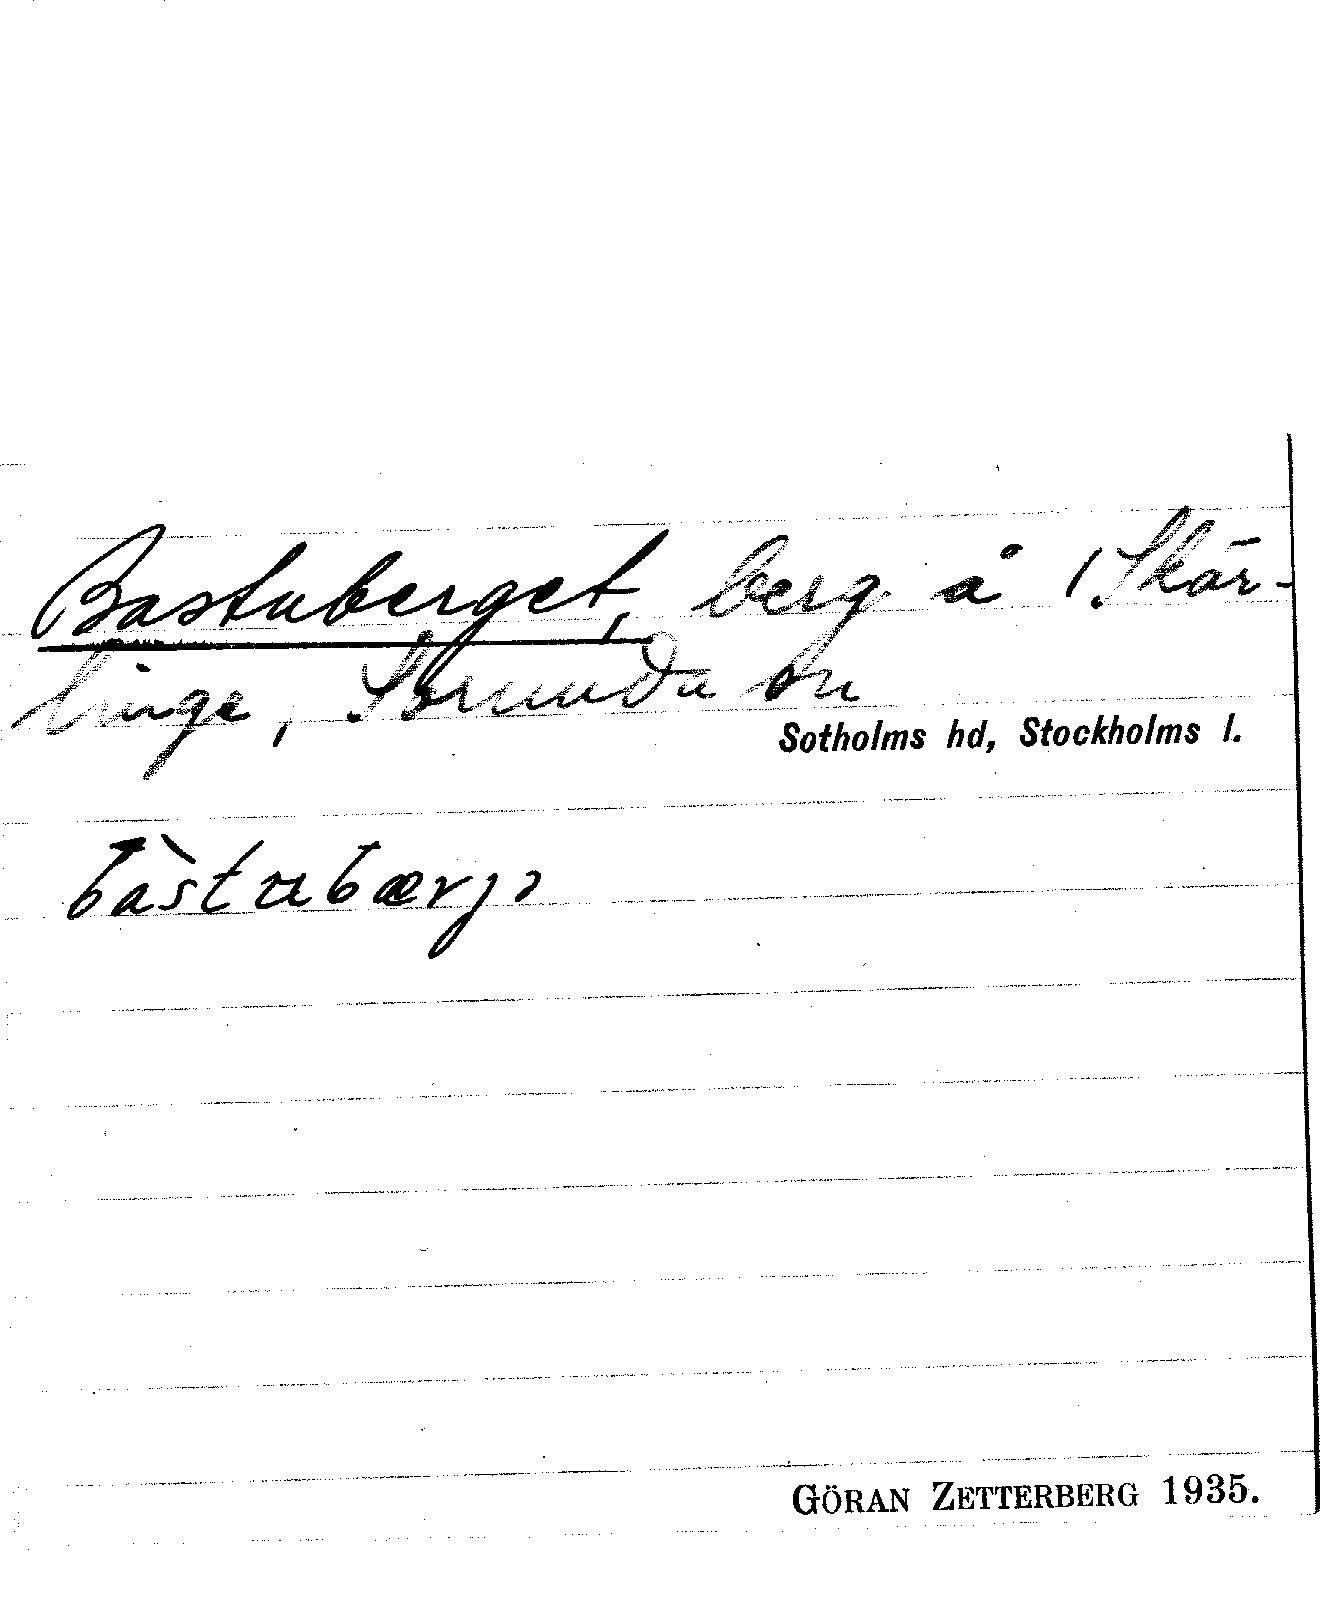 Bastuberget, berg å Skär-
linge, Sorunda sn
Sotholms hd, Stockholms l.
bàstubærjə
GÖRAN ZETTERBERG 1935.